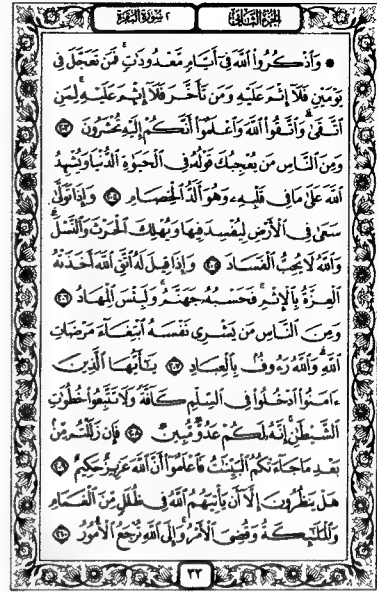 الجزء الثاني
٢ سورة البقرة
۞ وَٱذۡكُرُواْ ٱللَّهَ فِيٓ أَيَّامٖ مَّعۡدُودَٰتٖۚ فَمَن تَعَجَّلَ فِي
يَوۡمَيۡنِ فَلَآ إِثۡمَ عَلَيۡهِ وَمَن تَأَخَّرَ فَلَآ إِثۡمَ عَلَيۡهِۖ لِمَنِ
ٱتَّقَىٰۗ وَٱتَّقُواْ ٱللَّهَ وَٱعۡلَمُوٓاْ أَنَّكُمۡ إِلَيۡهِ تُحۡشَرُونَ ٢٠٣
وَمِنَ ٱلنَّاسِ مَن يُعۡجِبُكَ قَوۡلُهُۥ فِي ٱلۡحَيَوٰةِ ٱلدُّنۡيَا وَيُشۡهِدُ
ٱللَّهَ عَلَىٰ مَا فِي قَلۡبِهِۦ وَهُوَ أَلَدُّ ٱلۡخِصَامِ ٢٠٤ وَإِذَا تَوَلَّىٰ
سَعَىٰ فِي ٱلۡأَرۡضِ لِيُفۡسِدَ فِيهَا وَيُهۡلِكَ ٱلۡحَرۡثَ وَٱلنَّسۡلَۚ
وَٱللَّهُ لَا يُحِبُّ ٱلۡفَسَادَ ٢٠٥ وَإِذَا قِيلَ لَهُ ٱتَّقِ ٱللَّهَ أَخَذَتۡهُ
ٱلۡعِزَّةُ بِٱلۡإِثۡمِۚ فَحَسۡبُهُۥ جَهَنَّمُۖ وَلَبِئۡسَ ٱلۡمِهَادُ ٢٠٦
وَمِنَ ٱلنَّاسِ مَن يَشۡرِي نَفۡسَهُ ٱبۡتِغَآءَ مَرۡضَاتِ
ٱللَّهِۚ وَٱللَّهُ رَءُوفُۢ بِٱلۡعِبَادِ ٢٠٧ يَٰٓأَيُّهَا ٱلَّذِينَ
ءَامَنُواْ ٱدۡخُلُواْ فِي ٱلسِّلۡمِ كَآفَّةٗ وَلَا تَتَّبِعُواْ خُطُوَٰتِ
ٱلشَّيۡطَٰنِۚ إِنَّهُۥ لَكُمۡ عَدُوّٞ مُّبِينٞ ٢٠٨ فَإِن زَلَلۡتُم مِّنۢ
بَعۡدِ مَا جَآءَتۡكُمُ ٱلۡبَيِّنَٰتُ فَٱعۡلَمُوٓاْ أَنَّ ٱللَّهَ عَزِيزٌ حَكِيمٌ ٢٠٩
هَلۡ يَنظُرُونَ إِلَّآ أَن يَأۡتِيَهُمُ ٱللَّهُ فِي ظُلَلٖ مِّنَ ٱلۡغَمَامِ
وَٱلۡمَلَٰٓئِكَةُ وَقُضِيَ ٱلۡأَمۡرُۚ وَإِلَى ٱللَّهِ تُرۡجَعُ ٱلۡأُمُورُ ٢١٠
٣٢